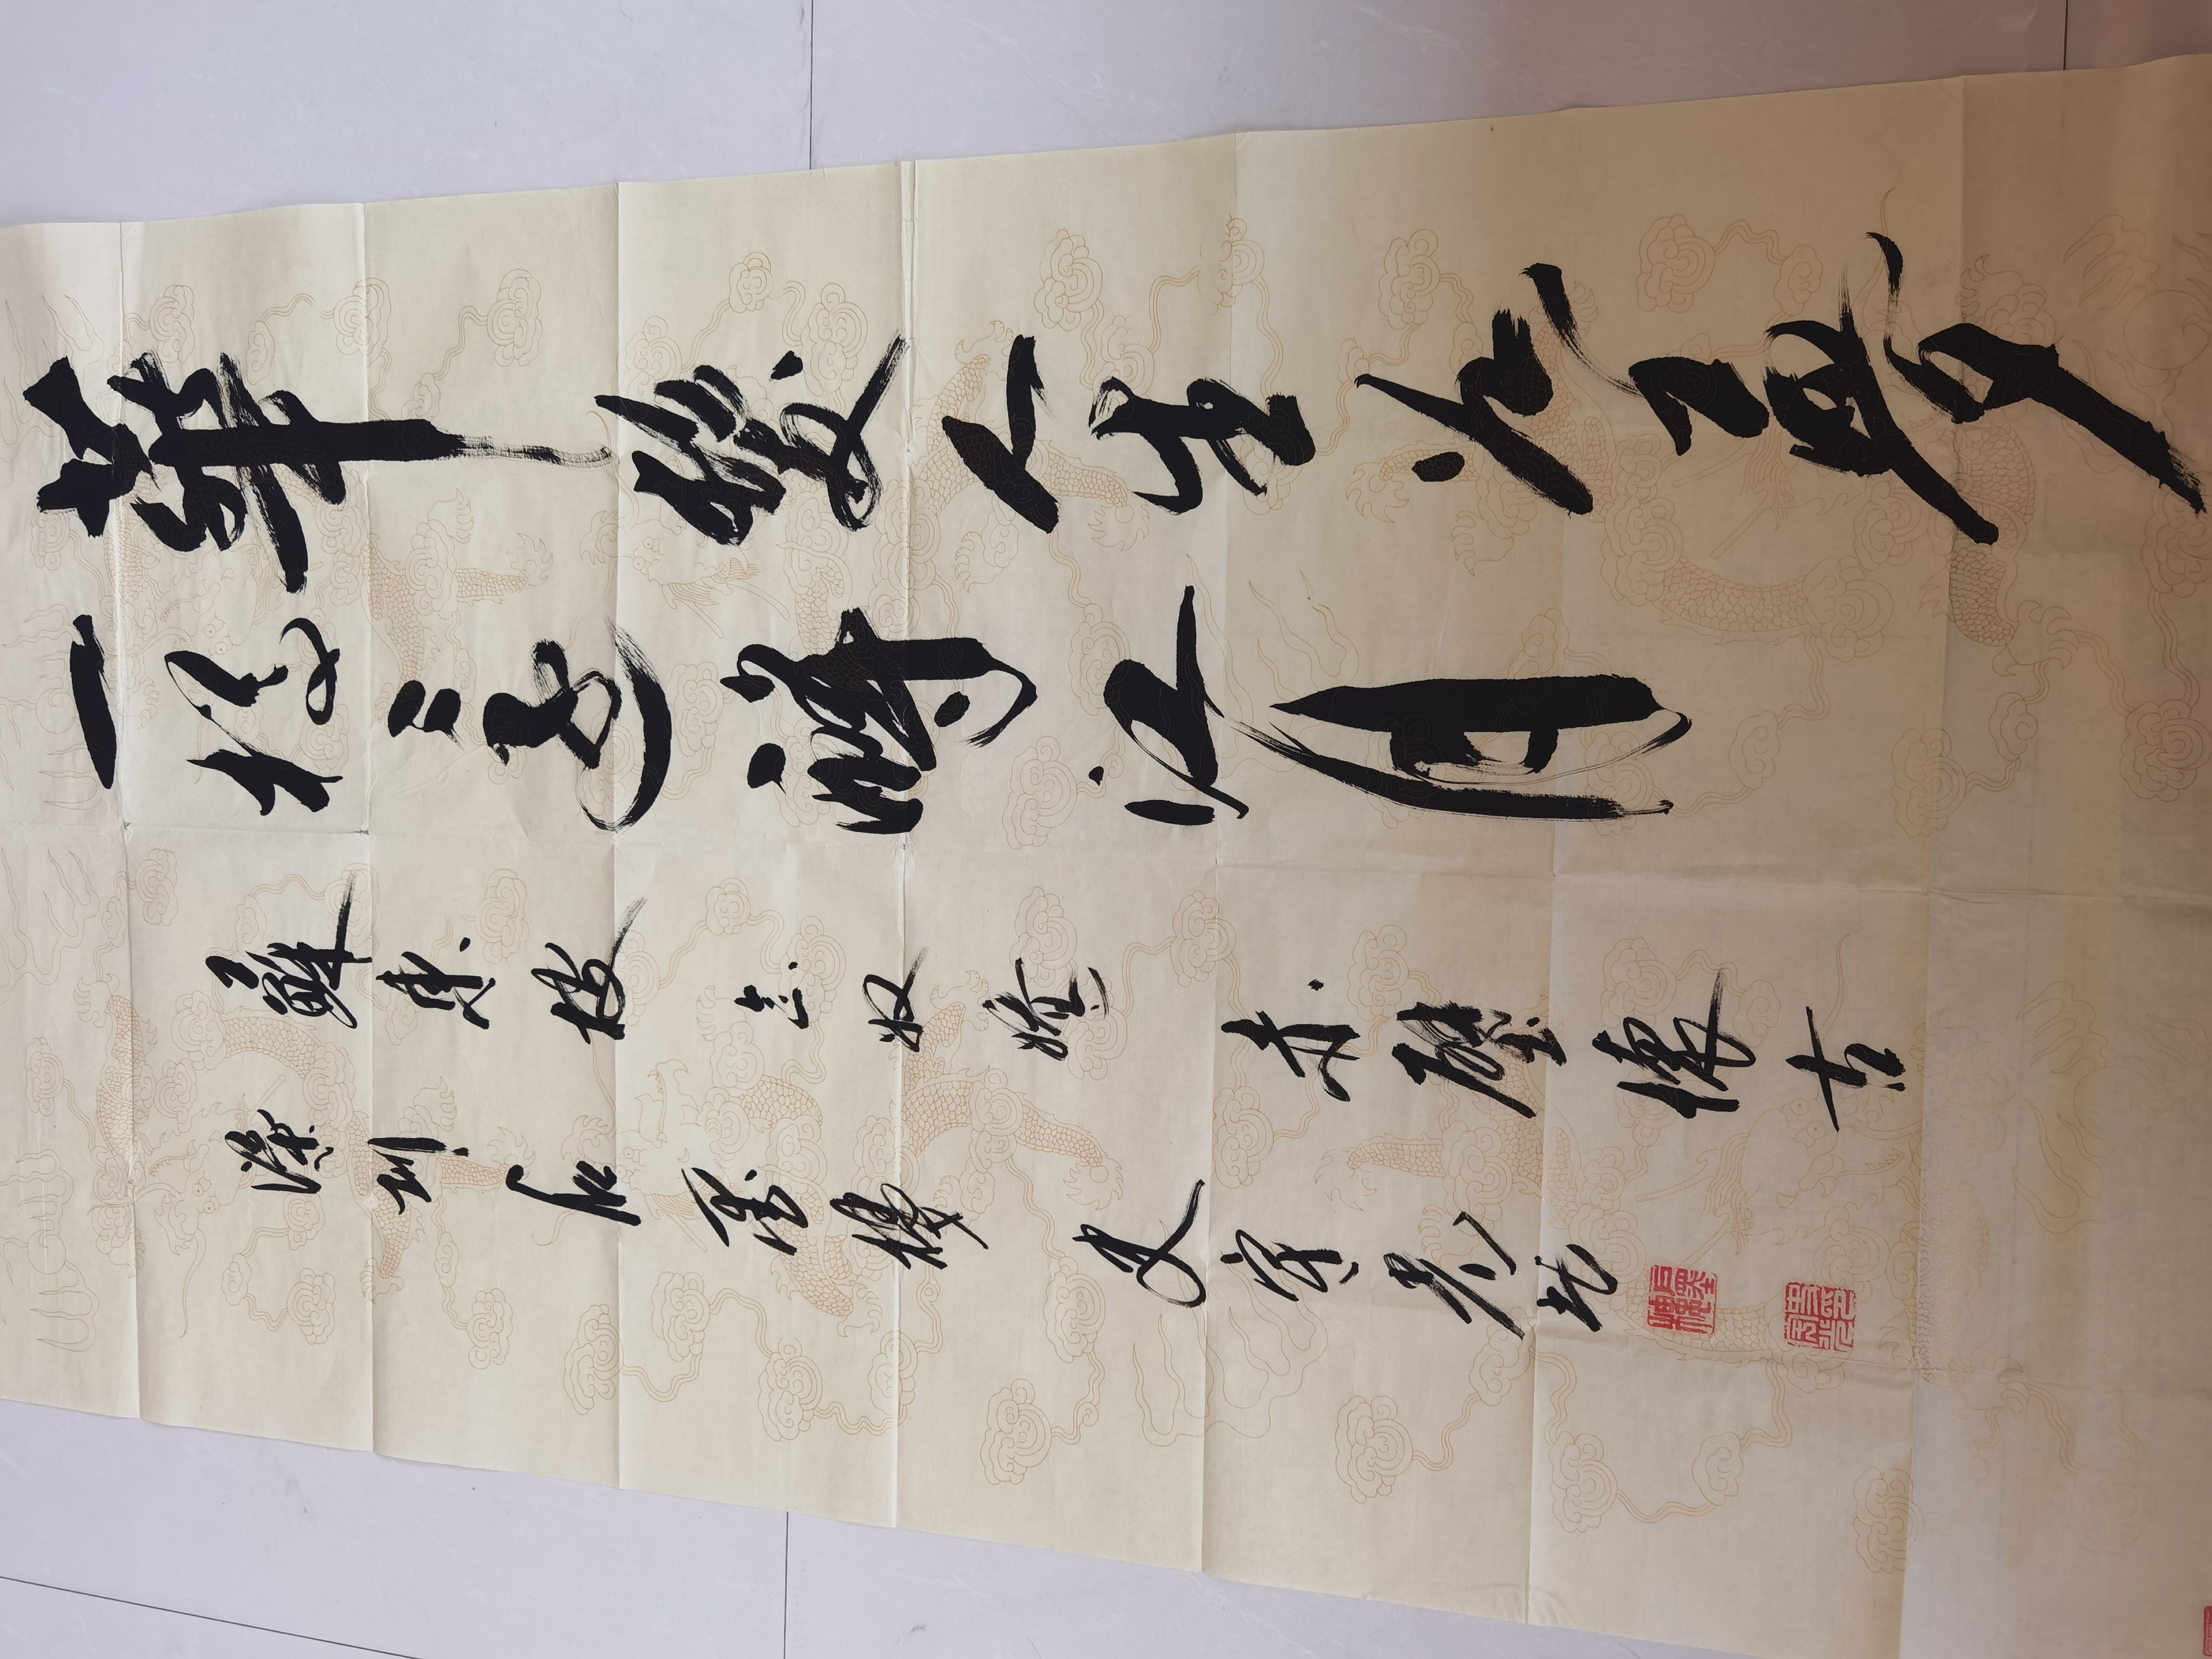 華髮人生如夢
一樽還酹江月
蘇東坡 念奴嬌 赤壁懷古
深圳石墨樓 史守光書